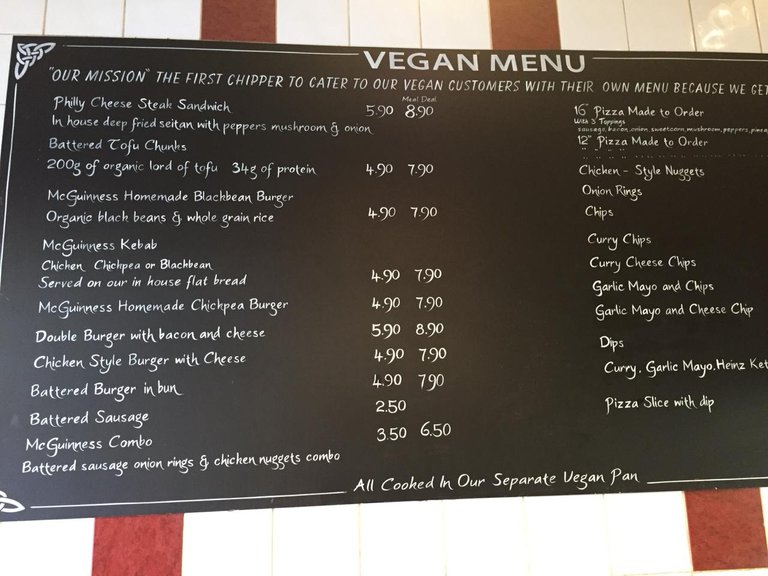 VEGAN MENU
"OUR MISSION" THE FIRST CHIPPER TO CATER TO OUR VEGAN CUSTOMERS WITH THEIR OWN MENU BECAUSE WE GET
Meal Deal
Philly Cheese Steak Sandwich 5.90 8.90
In house deep fried seitan with peppers mushroom & onion
Battered Tofu Chunks
200g of organic lord of tofu 34g of protein 4.90 7.90
McGuinness Homemade Blackbean Burger
Organic black beans & whole grain rice 4.90 7.90
McGuinness Kebab
Chicken Chickpea or Blackbean
Served on our in house flat bread 4.90 7.90
McGuinness Homemade Chickpea Burger 4.90 7.90
Double Burger with bacon and cheese 5.90 8.90
Chicken Style Burger with Cheese 4.90 7.90
Battered Burger in bun 4.90 7.90
Battered Sausage 2.50
McGuinness Combo 3.50 6.50
Battered sausage onion rings & chicken nuggets combo
16" Pizza Made to Order
With 3 Toppings
sausage, bacon, onion, sweetcorn, mushroom, peppers,
12" Pizza Made to Order
Chicken - Style Nuggets
Onion Rings
Chips
Curry Chips
Curry Cheese Chips
Garlic Mayo and Chips
Garlic Mayo and Cheese Chip
Dips
Curry, Garlic Mayo, Heinz Ket
Pizza Slice with dip
All Cooked In Our Separate Vegan Pan